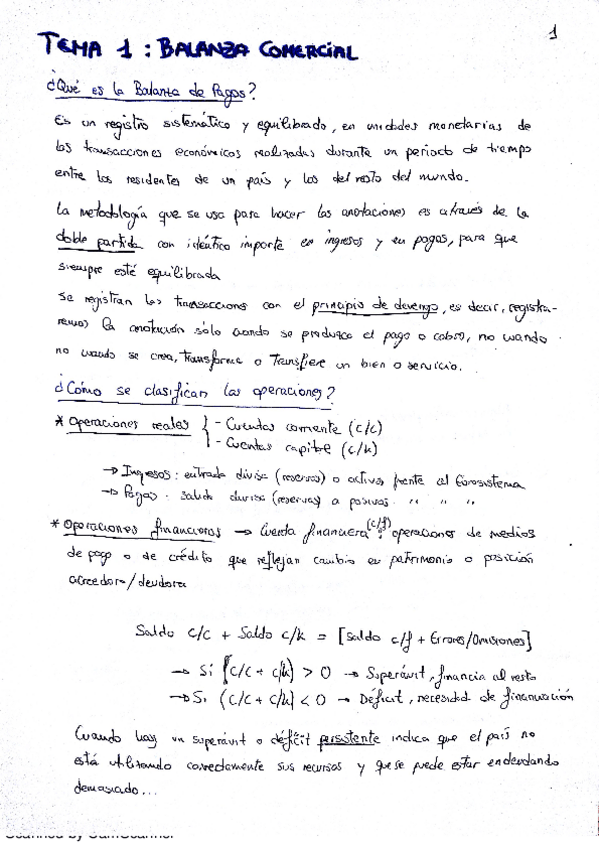 1
TEMA 1 : BALANZA COMERCIAL
¿Qué es la Balanza de Pagos?
Es un registro sistemático y equilibrado, en unidades monetarias de
las transacciones económicas realizadas durante un periodo de tiempo
entre los residentes de un país y los del resto del mundo.
La metodología que se usa para hacer las anotaciones es a través de la
doble partida con idéntico importe en ingresos y en pagos, para que
siempre esté equilibrada
Se registran las transacciones con el principio de devengo, es decir, registra-
remos la anotación sólo cuando se produzca el pago o cobro, no cuando
no cuando se crea, transforme o transfiere un bien o servicio.
¿Cómo se clasifican las operaciones?
* Operaciones reales { - Cuentas corriente (c/c)
- Cuentas capital (c/k)
→ Ingresos: entrada divisa (reservas) o activos frente al Eurosistema
→ Pagos: salida divisa (reservas) a pasivos " " "
* Operaciones financieras → Cuenta financiera (c/f): operaciones de medios
de pago o de crédito que reflejan cambio en patrimonio o posición
acreedora/deudora
Saldo c/c + Saldo c/k = [saldo c/f + Errores/Omisiones]
→ Si (c/c + c/k) > 0 → Superávit, financia al resto
→ Si (c/c + c/k) < 0 → Déficit, necesidad de financiación
Cuando hay un superávit o déficit persistente indica que el país no
está utilizando correctamente sus recursos y que se puede estar endeudando
demasiado...